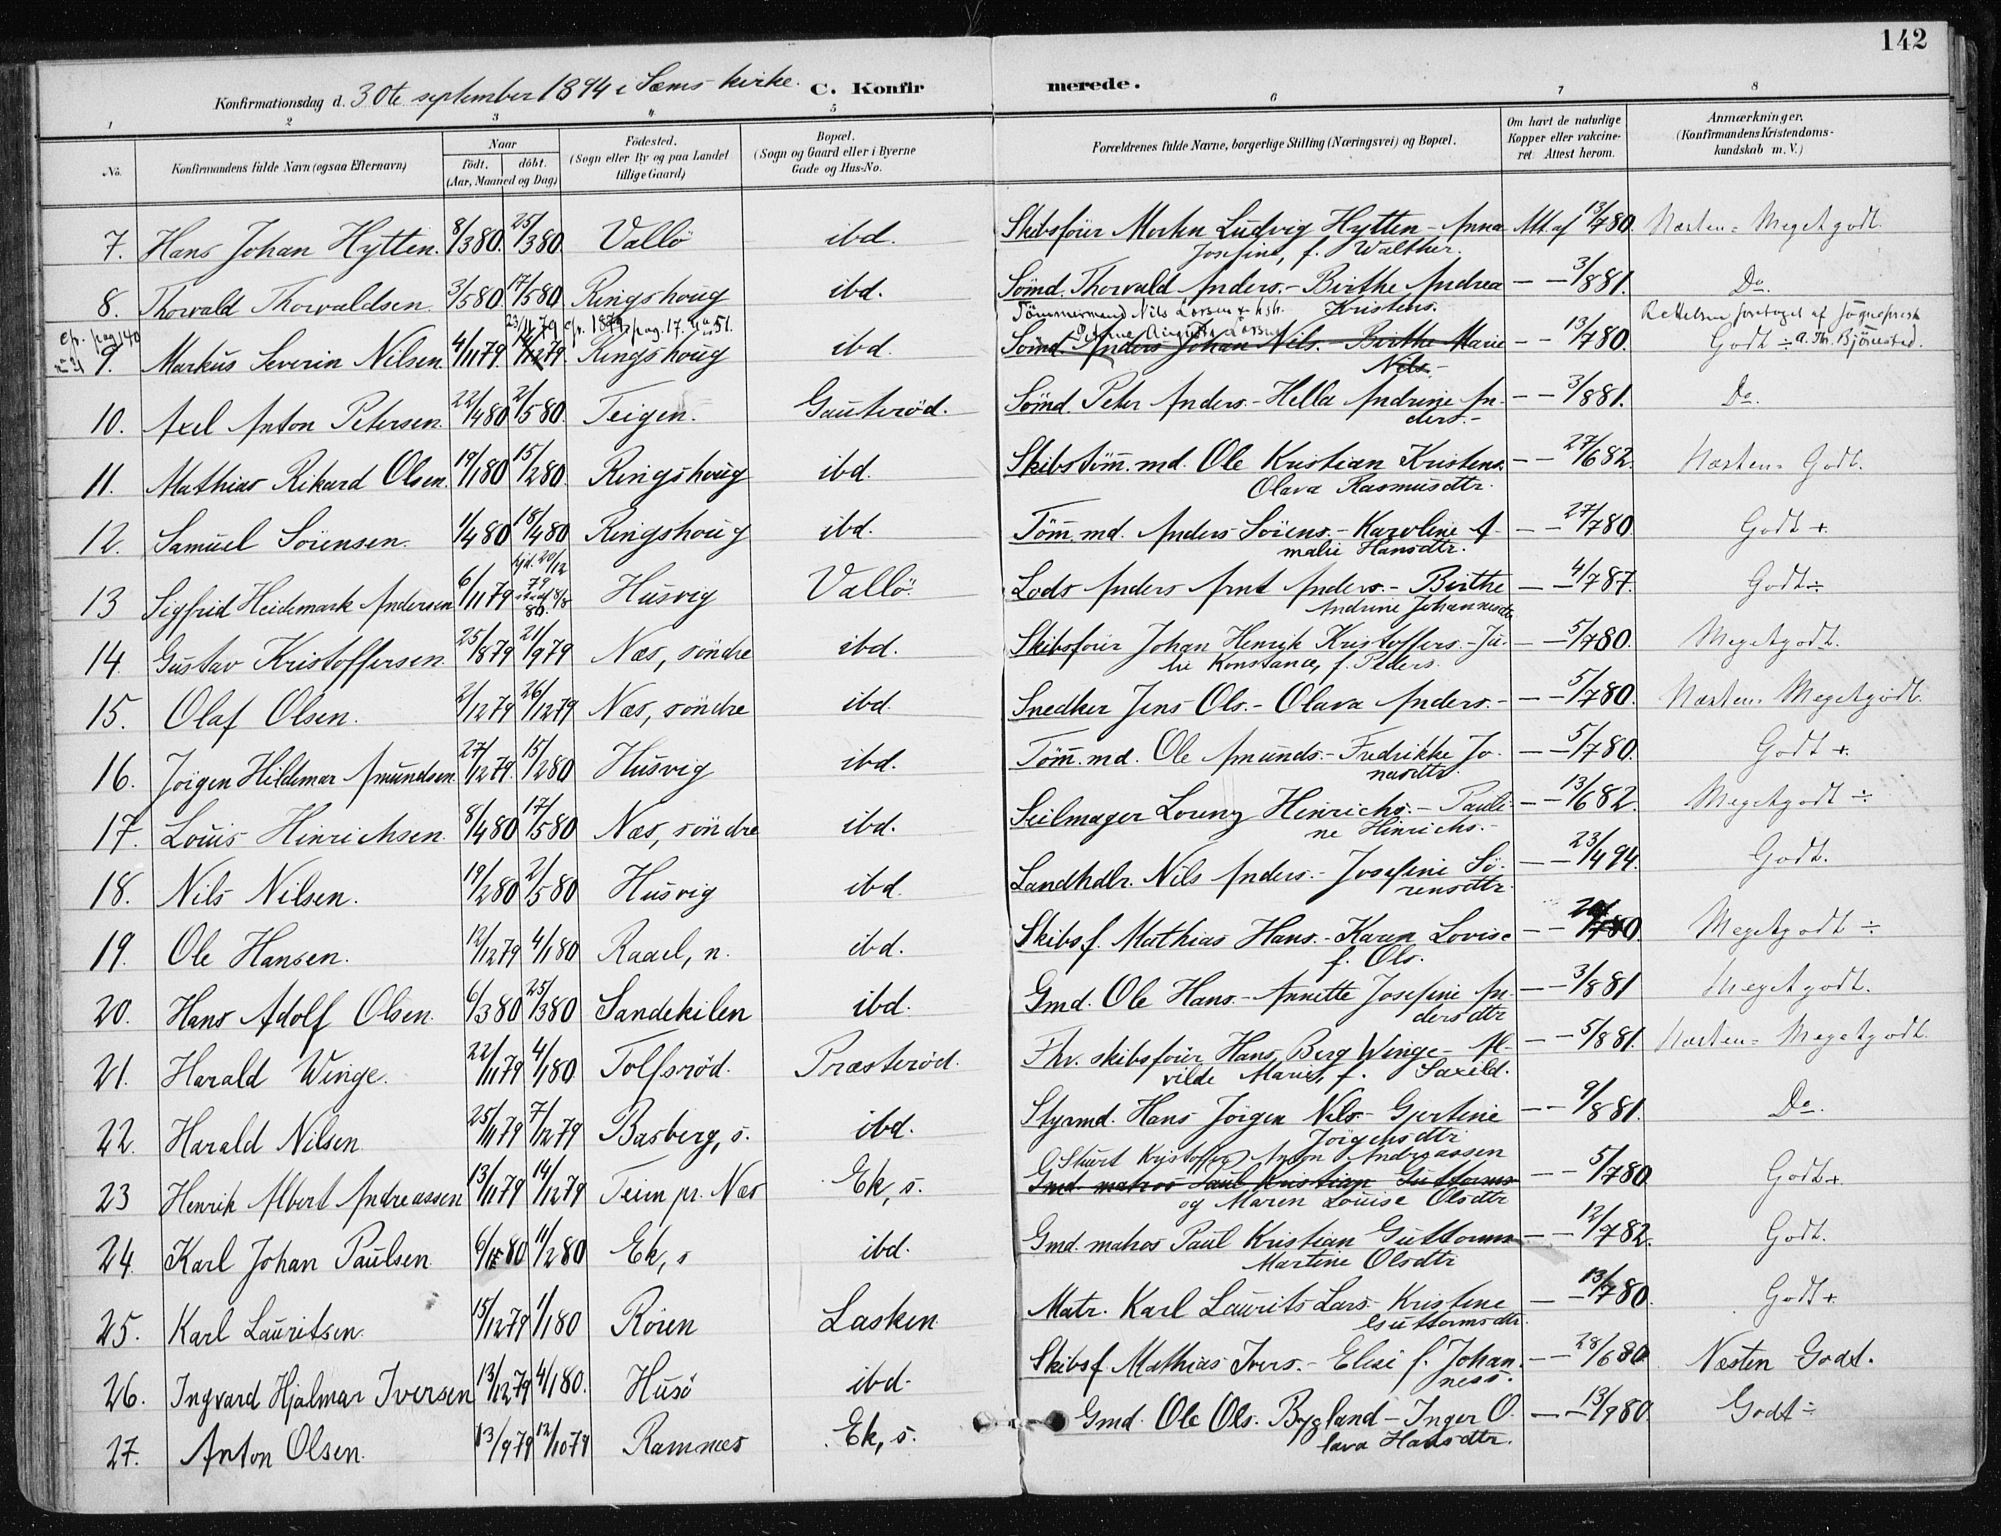 142
Konfirmationsdag d. 30te september 1894 i Sæms kirke. C. Konfirmerede.
1 2 3 4 5 6 7 8
No. Konfirmandens fulde Navn (ogsaa Efternavn) Naar født. døbt. (Aar, Maaned og Dag) Fødested. (Sogn eller By og paa Landet tillige Gaard) Bopæl. (Sogn og Gaard eller i Byerne Gade og Hus-No. Forældrenes fulde Navne, borgerlige Stilling (Næringsvei) og Bopæl. Om havt de naturlige Kopper eller vaccineret. Attest herom. Anmærkninger. (Konfirmandens Kristendomskundskab m. V.)
7. Hans Johan Hytten. 8/3 80. 25/3 80. Vallö ibd. Skibsförer Morten Ludvig Hytten - Anna Att. af 13/7 80. Næsten = Megetgodt.
Josefine, f. Walther.
8. Thorvald Thorvaldsen. 3/5 80. 17/5 80. Ringshoug ibd. Sömd. Thorvald Anders. - Birthe Andrea — — 3/8 81. Do.
Kristens.
Tömmermand Nils Larsen & hstr.
cfr. pag 140 23/11 79 cfr. 1879 pag. 17. no 51. Rettelsen foretaget af Sogneprest
9. Markus Severin Nilsen. 4/11 79. Ringshoug ibd. Sömd. Anders Johan Nils. Birthe Marie — — 13/7 80. Godt ÷ A. Th. Björnstad.
Nils. -
10. Axel Anton Petersen. 22/4 80. 2/5 80. Teigen. Gauterød. Sömd. Peter Anders. - Hella Andrine An- — — 3/8 81. Do.
ders. -
11. Mathias Rikard Olsen. 19/1 80. 15/2 80. Ringshoug ibd. Skibstöm. md. Ole Kristian Kristens. — — 27/6 82. Næsten = Godt.
Olava Rasmusdtr.
12. Samuel Sörensen. 1/4 80 18/4 80 Ringshoug ibd. Töm. md. Anders Sörens. - Karoline A- — — 27/7 80. Godt +
malie Hansdtr.
13 Sigfrid Heidemark Andersen 6/11 79 hjd. 20/12 79 8/8 80. Husvig Vallö. Lods Anders Arnt Anders. - Birthe — — 4/7 87. Godt ÷
Andrine Johannesdtr
14. Gustav Kristoffersen. 25/8 79 21/9 79 Næs, söndre ibd. Skibsförer Johan Henrik Kristoffers. - Ju- — — 5/7 80. Megetgodt.
lie Konstance, f. Peders.
15. Olaf Olsen. 2/12 79 26/12 79 Næs, söndre ibd Snedker Jens Ols. - Olava Anders. - — — 5/7 80. Næsten = Megetgodt.
16. Jörgen Hildemar Amundsen. 27/12 79. 15/2 80 Husvig ibd. Töm. md. Ole Amunds. - Fredrikke Jo- — — 5/7 80. Godt +.
nasdtr.
17. Louis Hinrichsen. 8/4 80 17/5 80 Næs, söndre ibd. Seilmager Lorenz Henrichs. - Pauli- — — 13/6 82. Megetgodt ÷
ne Hinrichs. -
18. Nils Nilsen. 19/2 80 2/5 80 Husvig ibd. Landhdlr. Nils Anders. - Josefine Sö- — — 23/4 94. Godt.
rensdtr.
19. Ole Hansen. 12/12 79 4/1 80 Raael, n. ibd. Skibsf. Mathias Hans. - Karen Lovise — — 80. Megetgodt ÷
f. Ols.
20. Hans Adolf Olsen. 6/3 80 25/3 80 Sandekilen ibd. Gmd. Ole Hans. - Annette Josefine An- — — 3/8 81 Megetgodt.
dersdtr
21. Harald Winge. 22/11 79 4/1 80 Tolfsröd. Præsterød. Fhv. skibsförer Hans Berg Winge - Al- — — 5/8 81. Næsten = Megetgodt.
vilde Marie, f. Saxild.
22. Harald Nilsen 25/11 79 7/12 79 Basberg, s. ibd. Styrmd. Hans Jörgen Nils. - Gjertine — — 9/8 81. Do.
Jörgensdtr
Stuert Kristoffer Anton Andreassen
23 Henrik Albert Andreassen 13/11 79 14/12 79 Teien pr. Næs Ek, s. Gmd. matros Paul Kristian Guttorms — — 5/7 80 Godt +
og Maren Louise Olsdtr
24. Karl Johan Paulsen. 6/1 80 11/2 80 Ek, s ibd. Gmd. matros Paul Kristian Guttorms — — 12/7 82. Godt.
Martine Olsdtr
25. Karl Lauritsen. 15/12 79 1/1 80 Rören Lasken Matr. Karl Laurits Lars. Kristine — — 13/7 80. Godt +
Guttormsdtr.
26. Ingvard Hjalmar Iversen 13/12 79 4/1 80. Husö ibd. Skibsf. Mathias Ivers. - Elise f. Johan- — — 28/6 80 Næsten Godt.
ness.
27. Anton Olsen. 13/9 79 12/10 79 Ramnæs Ek, s. Gmd. Ole Ols. Bygland - Inger O- — — 13/9 80. Godt ÷
lava Hansdtr.